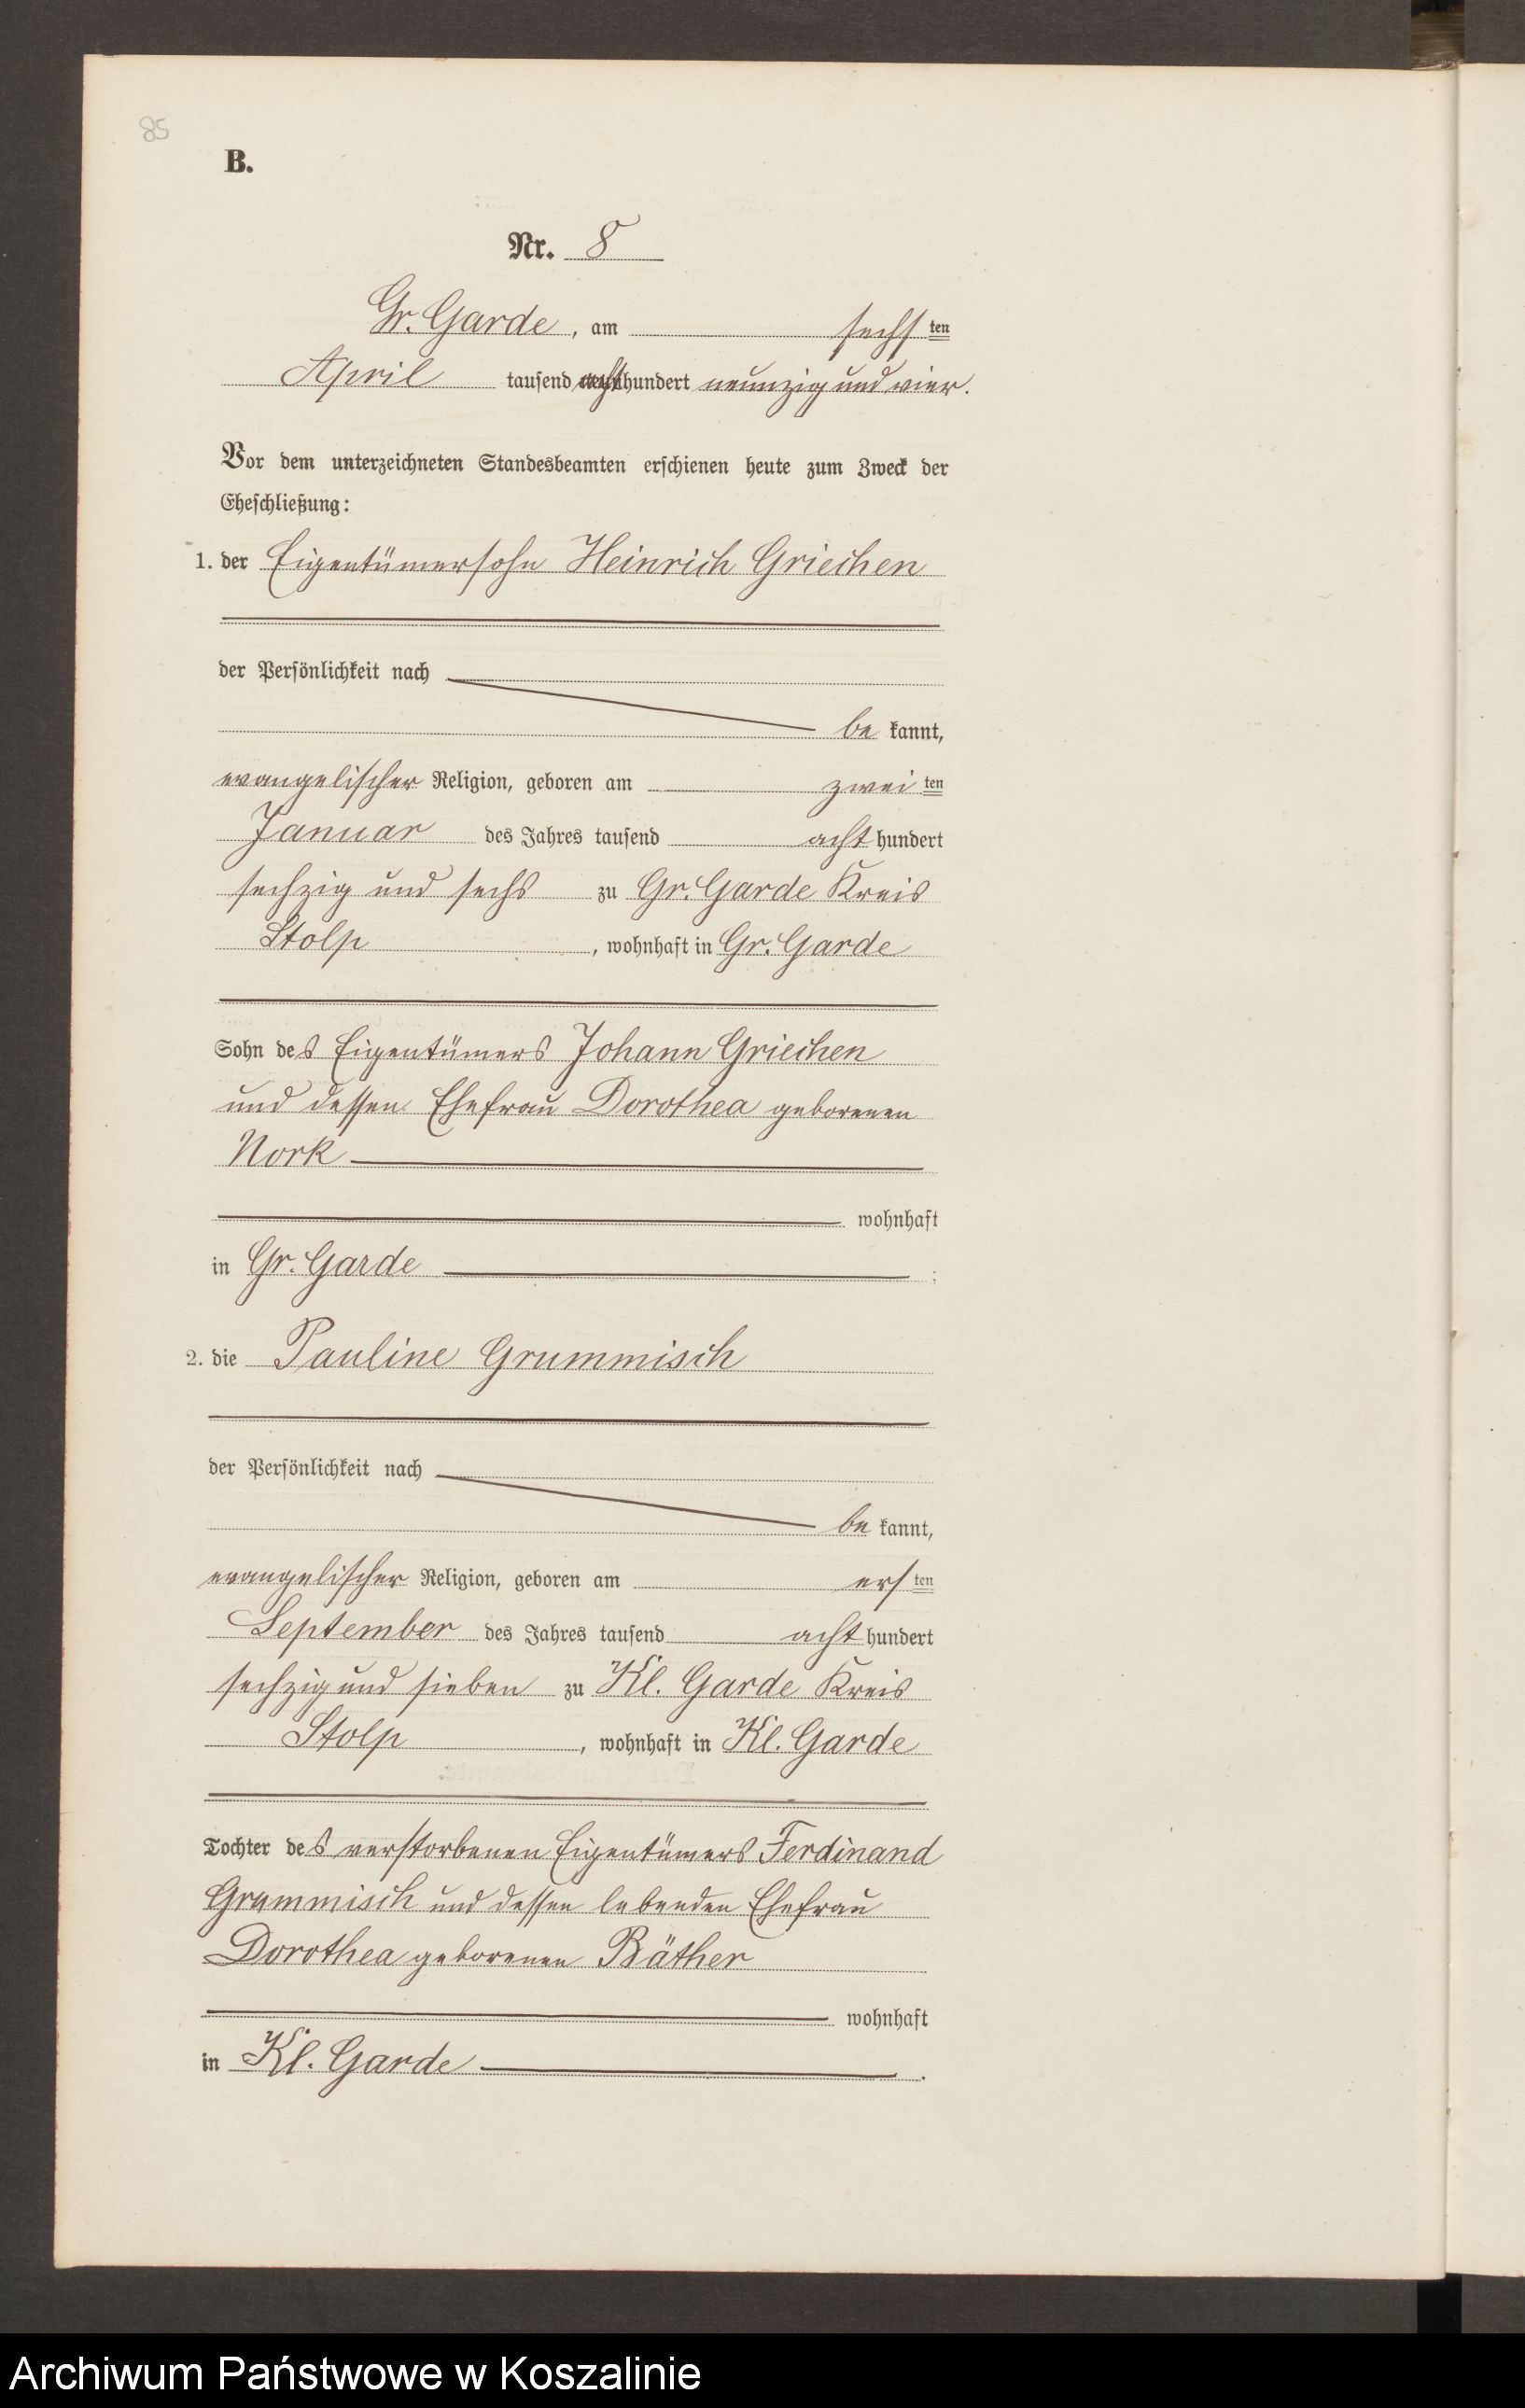 85
B.
Nr. 8
Gr. Garde, am sechsten
April tausend achthundert neunzig und vier.
Vor dem unterzeichneten Standesbeamten erschienen heute zum Zweck der
Eheschließung:
1. der Eigentümersohn Heinrich Griechen
der Persönlichkeit nach
be kannt,
evangelischer Religion, geboren am zweiten
Januar des Jahres tausend acht hundert
sechzig und sechs zu Gr. Garde Kreis
Stolp, wohnhaft in Gr. Garde
Sohn des Eigentümers Johann Griechen
und dessen Ehefrau Dorothea geborenen
Nork
wohnhaft
in Gr. Garde ;
2. die Pauline Grummisch
der Persönlichkeit nach
be kannt,
evangelischer Religion, geboren am ersten
September des Jahres tausend acht hundert
sechzig und sieben zu Kl. Garde Kreis
Stolp, wohnhaft in Kl. Garde
Tochter des verstorbenen Eigentümers Ferdinand
Grummisch und dessen lebenden Ehefrau
Dorothea geborenen Räther
wohnhaft
in Kl. Garde .
Archiwum Państwowe w Koszalinie